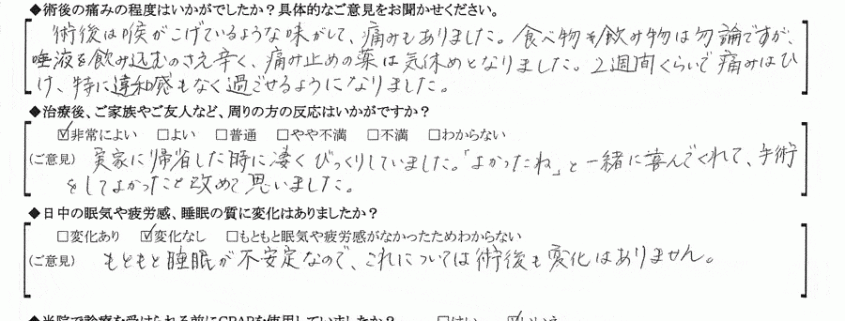 ◆術後の痛みの程度はいかがでしたか？具体的なご意見をお聞かせください。
術後は喉がこげているような味がして、痛みもありました。食べ物も飲み物は勿論ですが、
唾液を飲み込むのさえ辛く、痛み止めの薬は気休めとなりました。2週間くらいで痛みはひ
け、特に違和感もなく過ごせるようになりました。
◆治療後、ご家族やご友人など、周りの方の反応はいかがですか？
☑非常によい □よい □普通 □やや不満 □不満 □わからない
(ご意見) 実家に帰省した時に凄くびっくりしていました。「よかったね」と一緒に喜んでくれて、手術
をしてよかったこと改めて思いました。
◆日中の眠気や疲労感、睡眠の質に変化はありましたか？
□変化あり ☑変化なし □もともと眠気や疲労感がなかったためわからない
(ご意見) もともと睡眠が不安定なので、これについては術後も変化はありません。
◆当院で診療を受けられる前にCPAPを使用していましたか？ □はい ☑いいえ